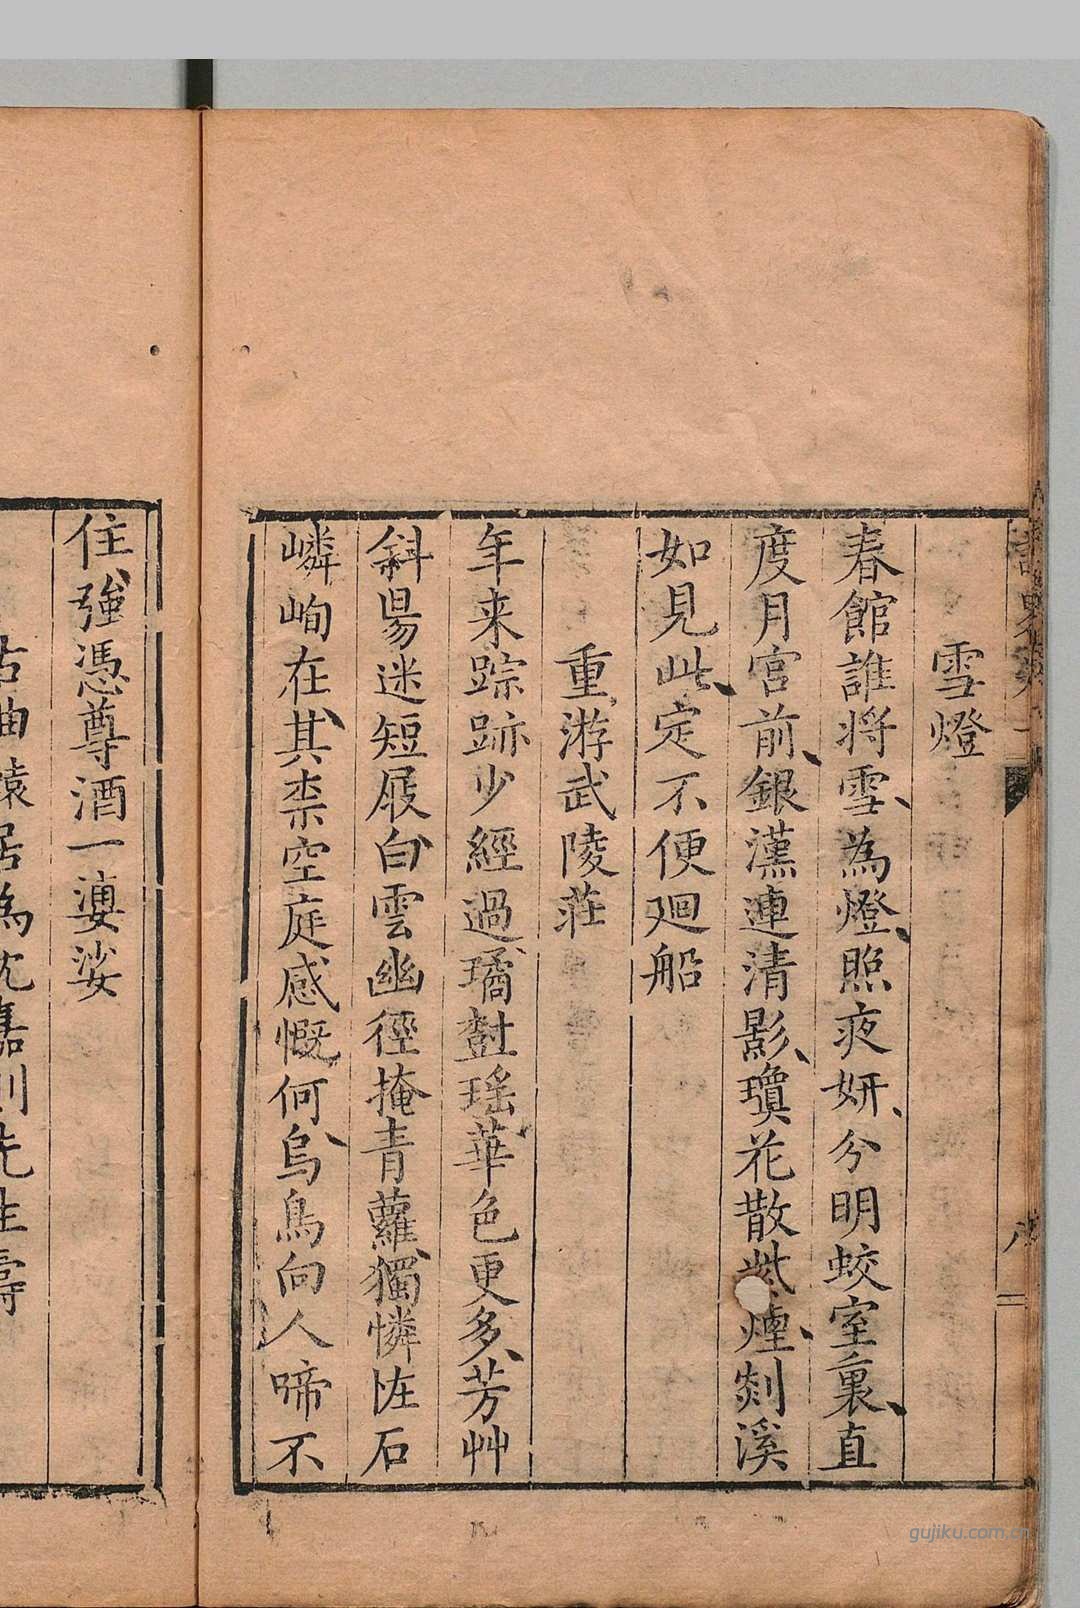 雪燈
春館誰将雪為燈照夜妍分明蛟室裏直
度月宮前銀漢連清影瓊花散紫煙剡溪
如見此定不便廻船
重游武陵莊
年来踪跡少經過璚𡬾瑤華色更多芳艸
斜陽迷短屐白雲幽徑掩青蘿獨憐恠石
嶙峋在其柰空庭感慨何烏鳥向人啼不
住強憑尊酒一婆娑
居為沈嘉則先生壽
gujiku.com.cn